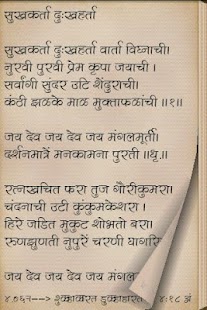 सुखकर्ता दुःखहर्ता
सुखकर्ता दुःखहर्ता वार्ता विघ्नाची।
नुरवी पुरवी प्रेम कृपा जयाची ।
सर्वांगी सुंदर उटि शेंदुराची।
कंठी झळके माळ मुक्ताफळांची ॥१॥
जय देव जय देव जय मंगलमूर्ती।
दर्शनमात्रें मनकामना पुरती ॥धृ.॥
रत्नखचित फरा तुज गौरीकुमरा।
चंदनाची उटी कुंकुमकेशरा ।
हिरे जडित मुकुट शोभतो बरा।
रुणझुणती नुपुरें चरणी
जय देव जय देव जय मंगल